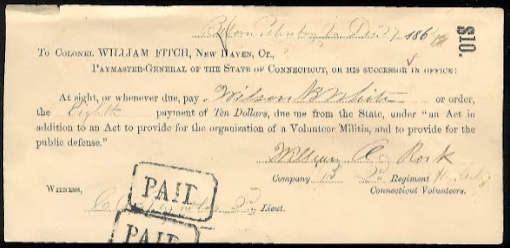 Petersburg Va Dec 27 186
$10.
To Colonel WILLIAM FITCH, New Haven, Ct.,
Paymaster-General of the State of Connecticut, or his successor in office:
At sight, or whenever due, pay Wilson N White or order,
the Eighth payment of Ten Dollars, due me from the State, under "an Act in
addition to an Act to provide for the organization of a Volunteer Militia, and to provide for the
public defense."
William Rock
Company Regiment
Witness, Connecticut Volunteers.
Lieut.
PAID
PAID